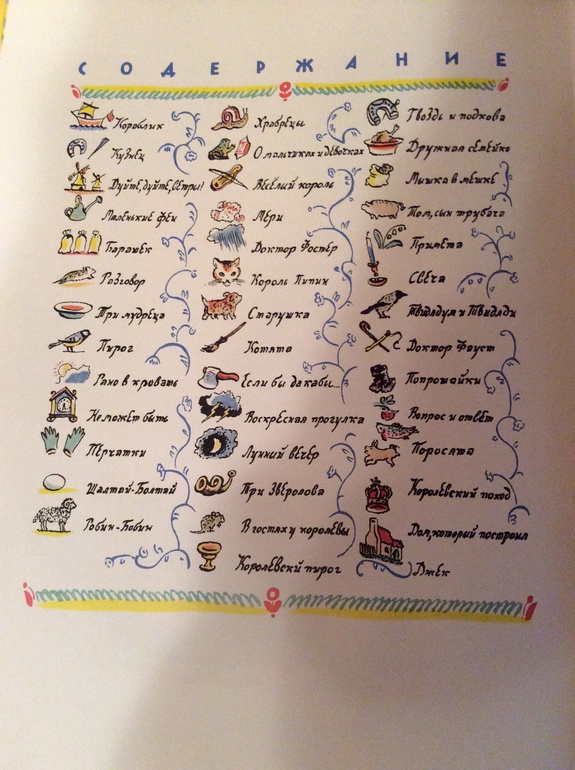 СОДЕРЖАНИЕ
Кораблик
Кузнец
Дуйте, дуйте, ветры!
Маленькие феи
Барашек
Разговор
Три мудреца
Пирог
Рано в кровать
Не может быть
Перчатки
Шалтай-Болтай
Робин-Бобин
Храбрецы
О мальчиках и девочках
Весёлый король
Мери
Доктор Фостер
Король Пипин
Старушка
Котята
Если бы да кабы...
Воскресная прогулка
Лунный вечер
Три зверолова
В гостях у королевы
Королевский пирог
Гвоздь и подкова
Дружная семейка
Мышка в мешке
Том, сын трубача
Примета
Свеча
Твидлдум и Твидлди
Доктор Фауст
Попрошайки
Вопрос и ответ
Поросята
Королевский поход
Дом, который построил
Джек